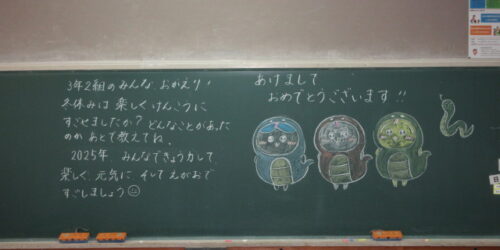 3年2組のみんな、おかえり!
冬休みは楽しくけんこうに
すごせましたか?どんなことがあった
のか あとで教えてね。
2025年 みんなできょう力して
楽しく、元気に そして えがおで
すごしましょう
あけまして
おめでとうございます!!